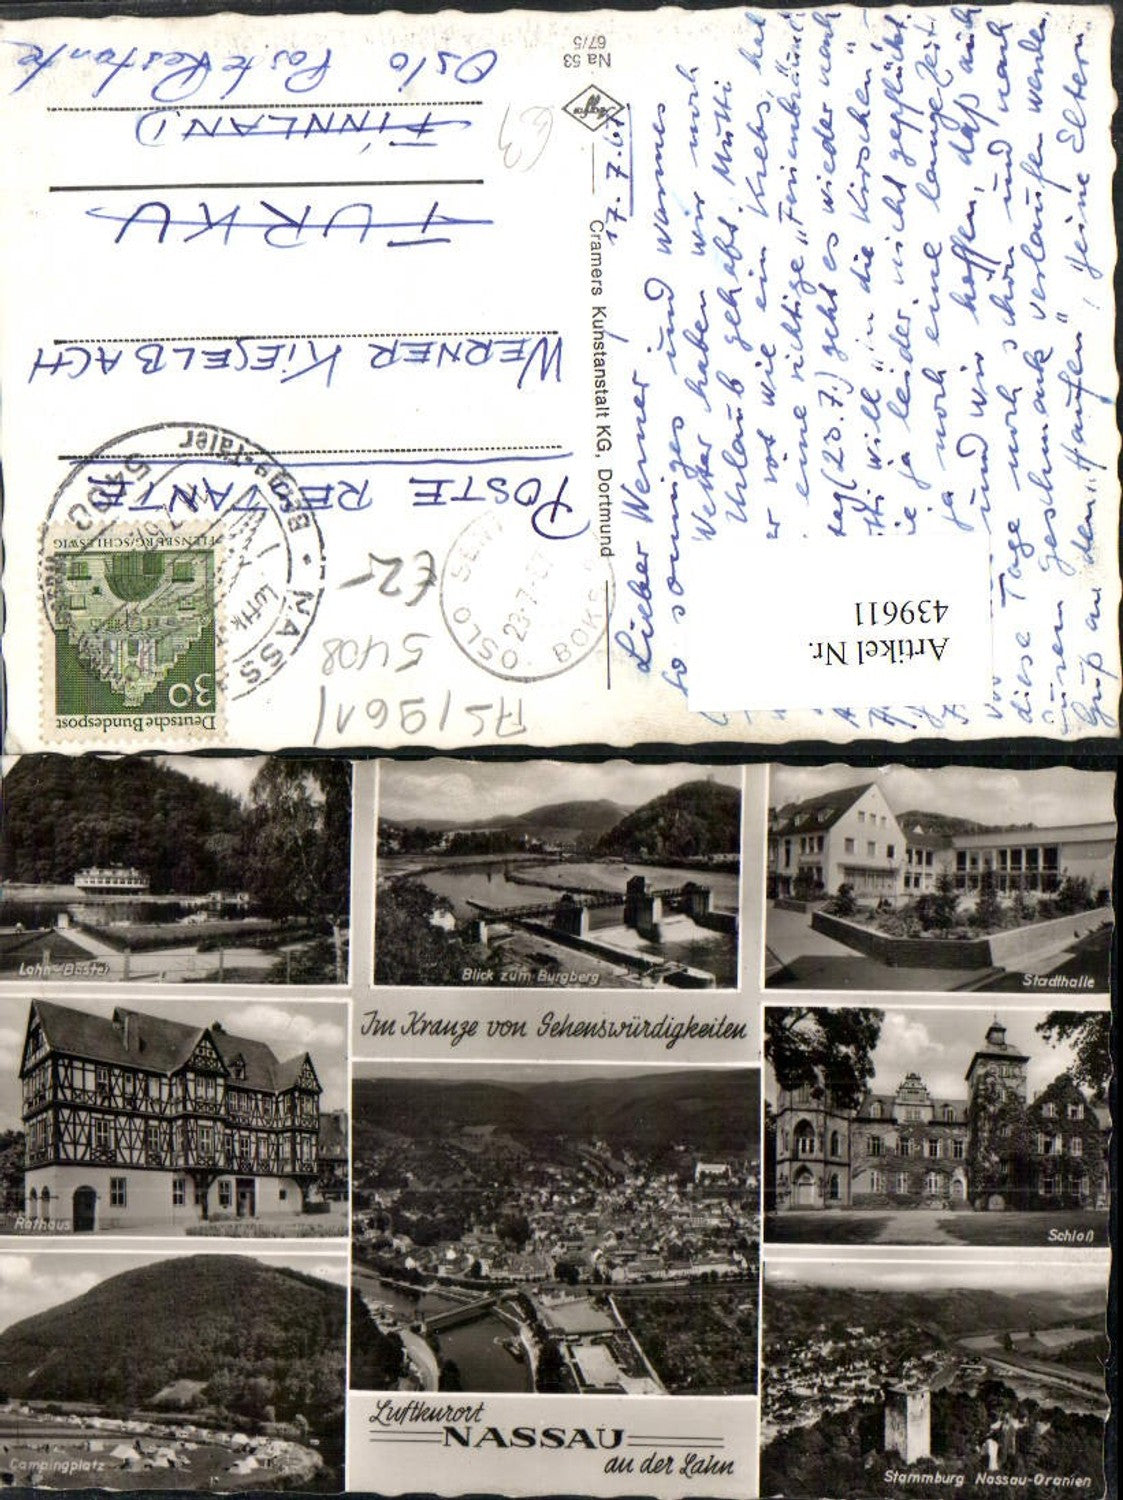 Oslo Poste Restante
FINNLAND
TURKU
WERNER KIESELBACH
POSTE RESTANTE
Na 53
67/5
Cramers Kunstanstalt KG, Dortmund
17.7.67
Lieber Werner!
So sonniges und warmes
Wetter haben wir noch
Urlaub gehabt. Mutti
rot wie ein Krebs, hat
eine richtige "Ferienbräune"
(23.7.) geht es wieder nach
will "in die Kirschen"
ja leider nicht gepflückt.
ja noch eine lange Zeit
und wir hoffen, daß auch
diese Tage noch schön und nach
eurem Geschmack verlaufen werden.
Gruß an den "Haufen"! Deine Eltern
Artikel Nr.
439611
AS1961
5408
€2,-
OSLO
23-7-67
5408 NASSAU
FLENSBURG/SCHLESWIG
30
Deutsche Bundespost
Lahn-Bastei
Blick zum Burgberg
Stadthalle
Im Kranze von Sehenswürdigkeiten
Rathaus
Schloß
Campingplatz
Luftkurort
NASSAU
an der Lahn
Stammburg Nassau-Oranien